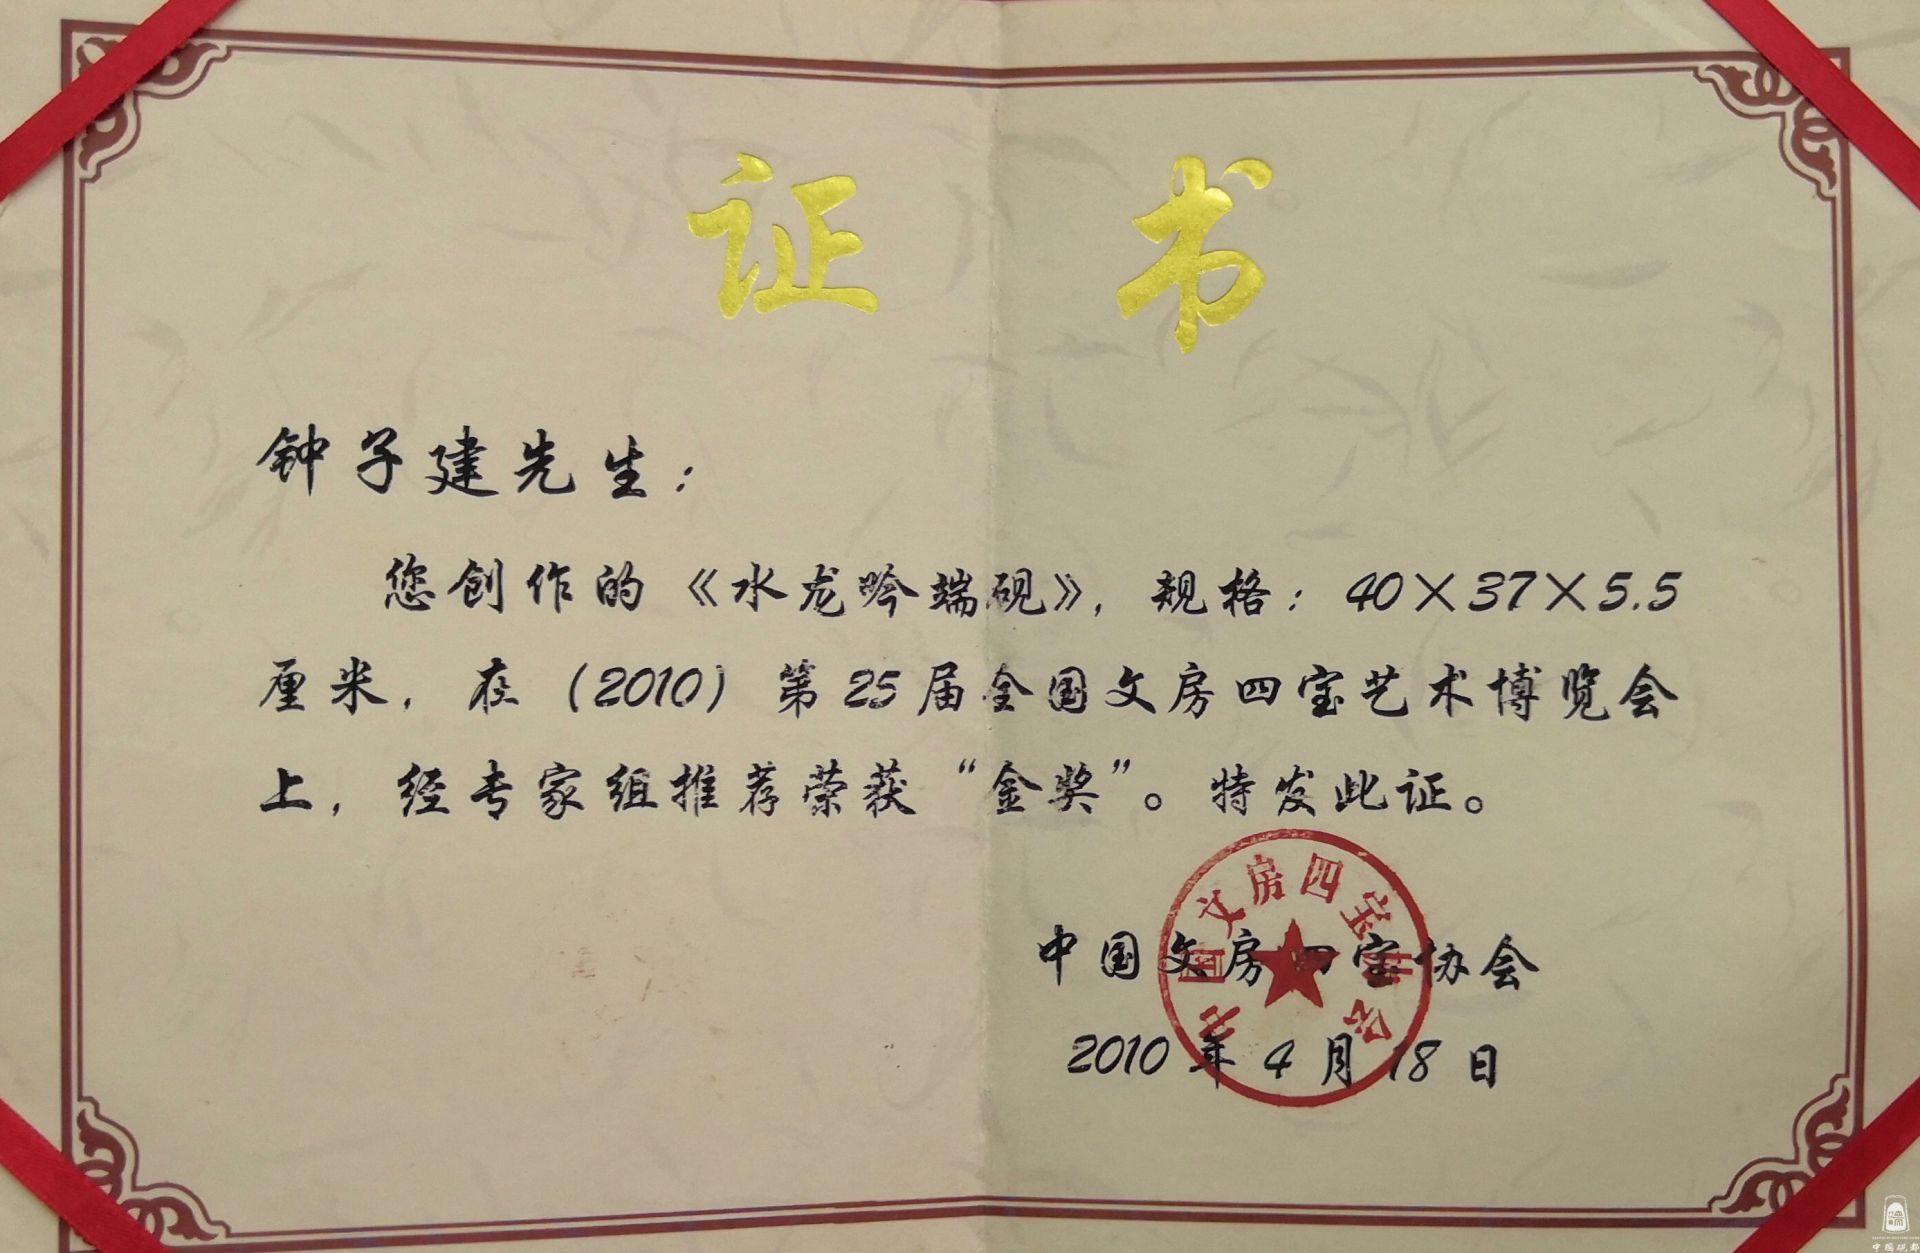 证书
钟子建先生：
您创作的《水龙吟端砚》，规格：40×37×5.5
厘米，在（2010）第25届全国文房四宝艺术博览会
上，经专家组推荐荣获“金奖”。特发此证。
中国文房四宝协会
2010年4月18日
中国文房四宝协会
端
中国砚都